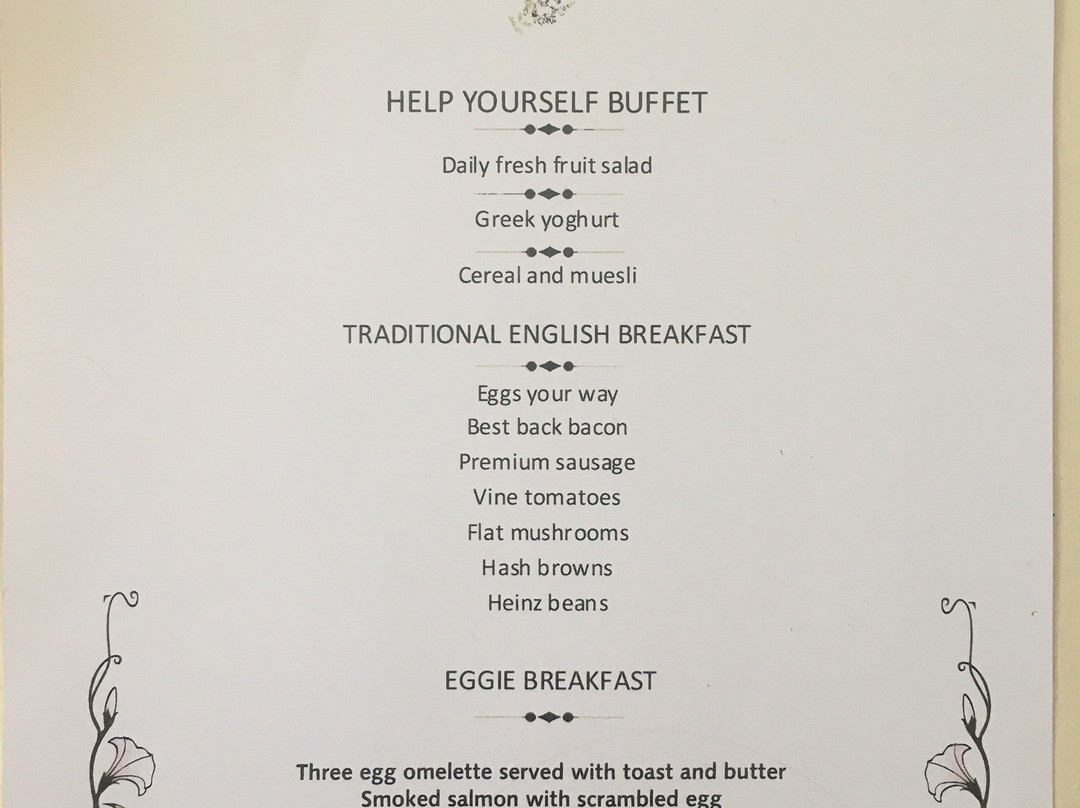 HELP YOURSELF BUFFET
Daily fresh fruit salad
Greek yoghurt
Cereal and muesli
TRADITIONAL ENGLISH BREAKFAST
Eggs your way
Best back bacon
Premium sausage
Vine tomatoes
Flat mushrooms
Hash browns
Heinz beans
EGGIE BREAKFAST
Three egg omelette served with toast and butter
Smoked salmon with scrambled egg